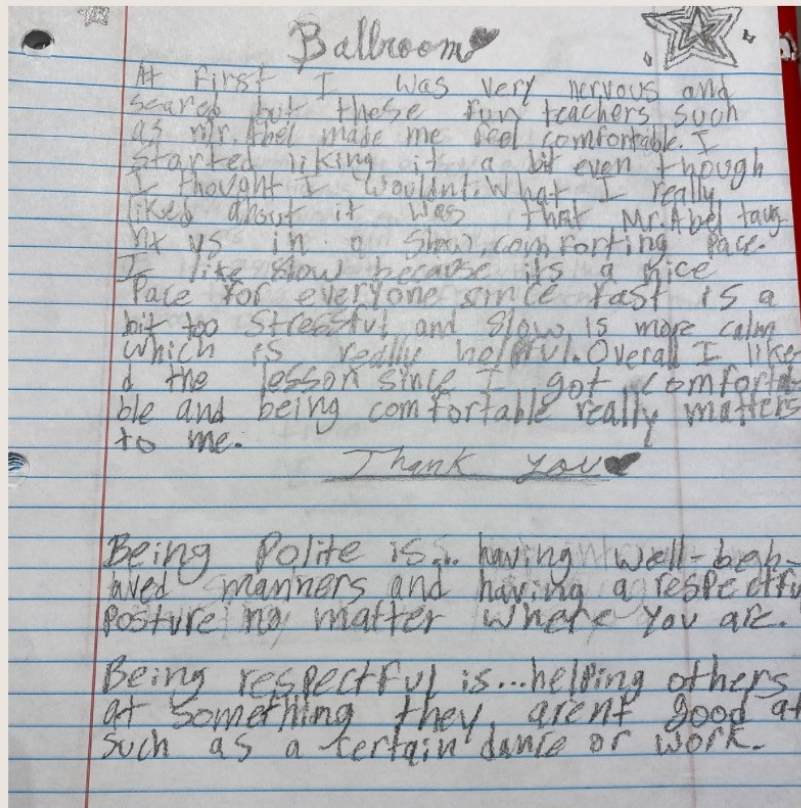 Ballroom
At first I was very nervous and
scared but these fun teachers such
as Mr. Abel made me feel comfortable. I
started liking it a bit even though
I thought I wouldnt. What I really
liked about it was that Mr. Abel taug
ht us in a slow, comforting pace.
I like slow because its a nice
Pace for everyone since fast is a
bit too stressful and slow is more calm
which is really helpful. Overall I like-
d the lesson since I got comforta
ble and being comfortable really matters
to me.
Thank you
Being Polite is... having well-beh-
aved manners and having a respectfu
Posture no matter where you are.
Being respectful is...helping others
at something they arent good at
such as a certain dance or work.